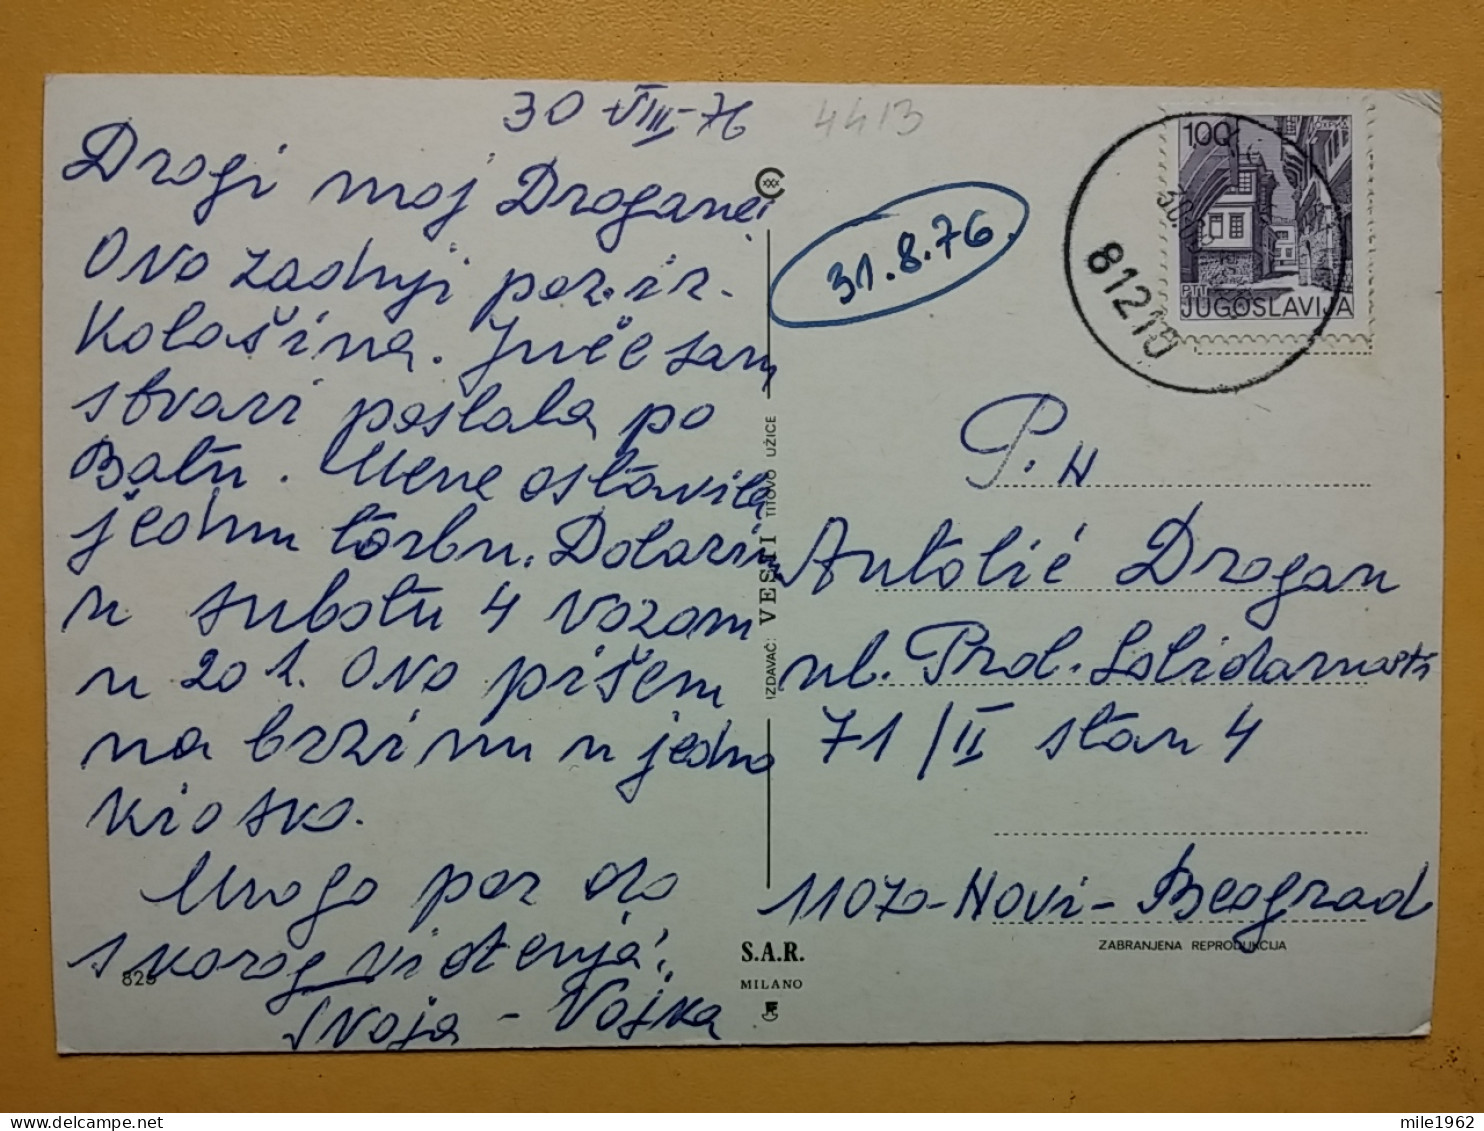 30 VIII-76
4413
Dragi moj Dragane!
Ovo zadnji poz. iz
Kolašina. Juče sam
stvari poslala po
Batu. Mene ostavila
jednu torbu. Dolazim
u subotu 4 vozom
u 20 h. Ovo pišem
na brzinu u jedno
kiosko.
Mnogo poz do
skorog viđenja!
Tvoja - Vojka
825
31.8.76.
100
PTT
JUGOSLAVIJA
81210
IZDAVAČ: VESTI TITOVO UŽICE
P. N
Antolić Dragan
ul. Prol. Solidarnosti
71/II stan 4
11070-Novi-Beograd
ZABRANJENA REPRODUKCIJA
S.A.R.
MILANO
mile1962